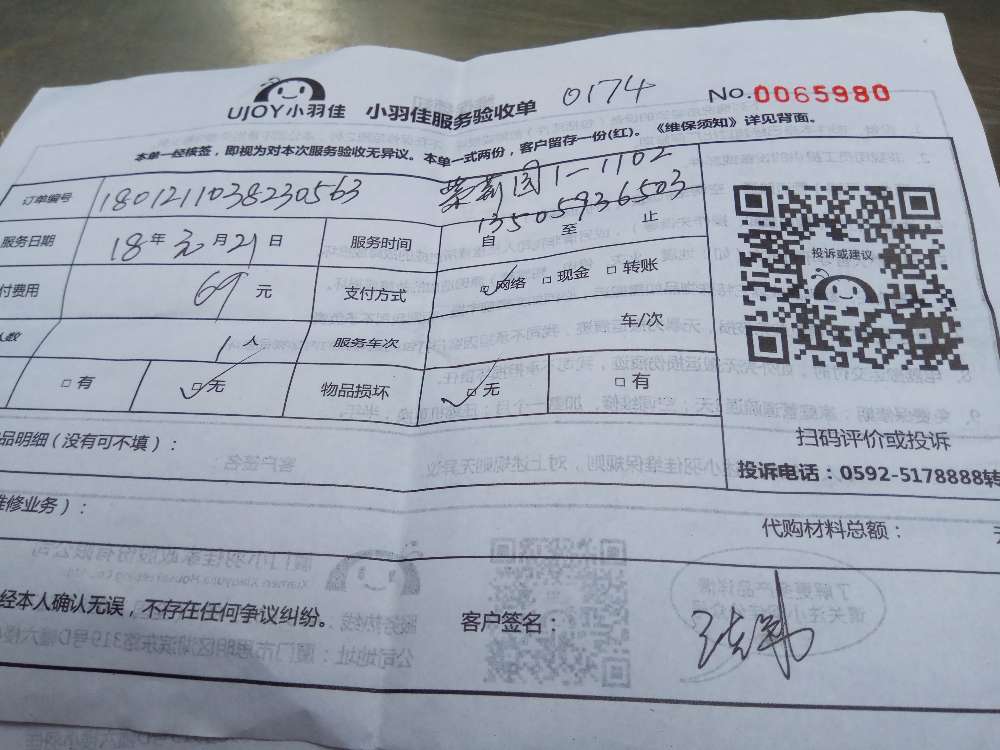 UJOY小羽佳 小羽佳服务验收单 0174 No.0065980
本单一经核签，即视为对本次服务验收无异议。本单一式两份，客户留存一份(红)。《维保须知》详见背面。
订单编号 1801211038230563 1-1102
13505936503
服务日期 18年元月21日 服务时间 自 至 止
付费用 69元 支付方式 网络 现金 转账
人数 1人 服务车次 车/次
有 无 物品损坏 无 有
投诉或建议
扫码评价或投诉
投诉电话：0592-5178888转
品明细（没有可不填）：
维修业务）：
代购材料总额：
经本人确认无误，不存在任何争议纠纷。 客户签名：